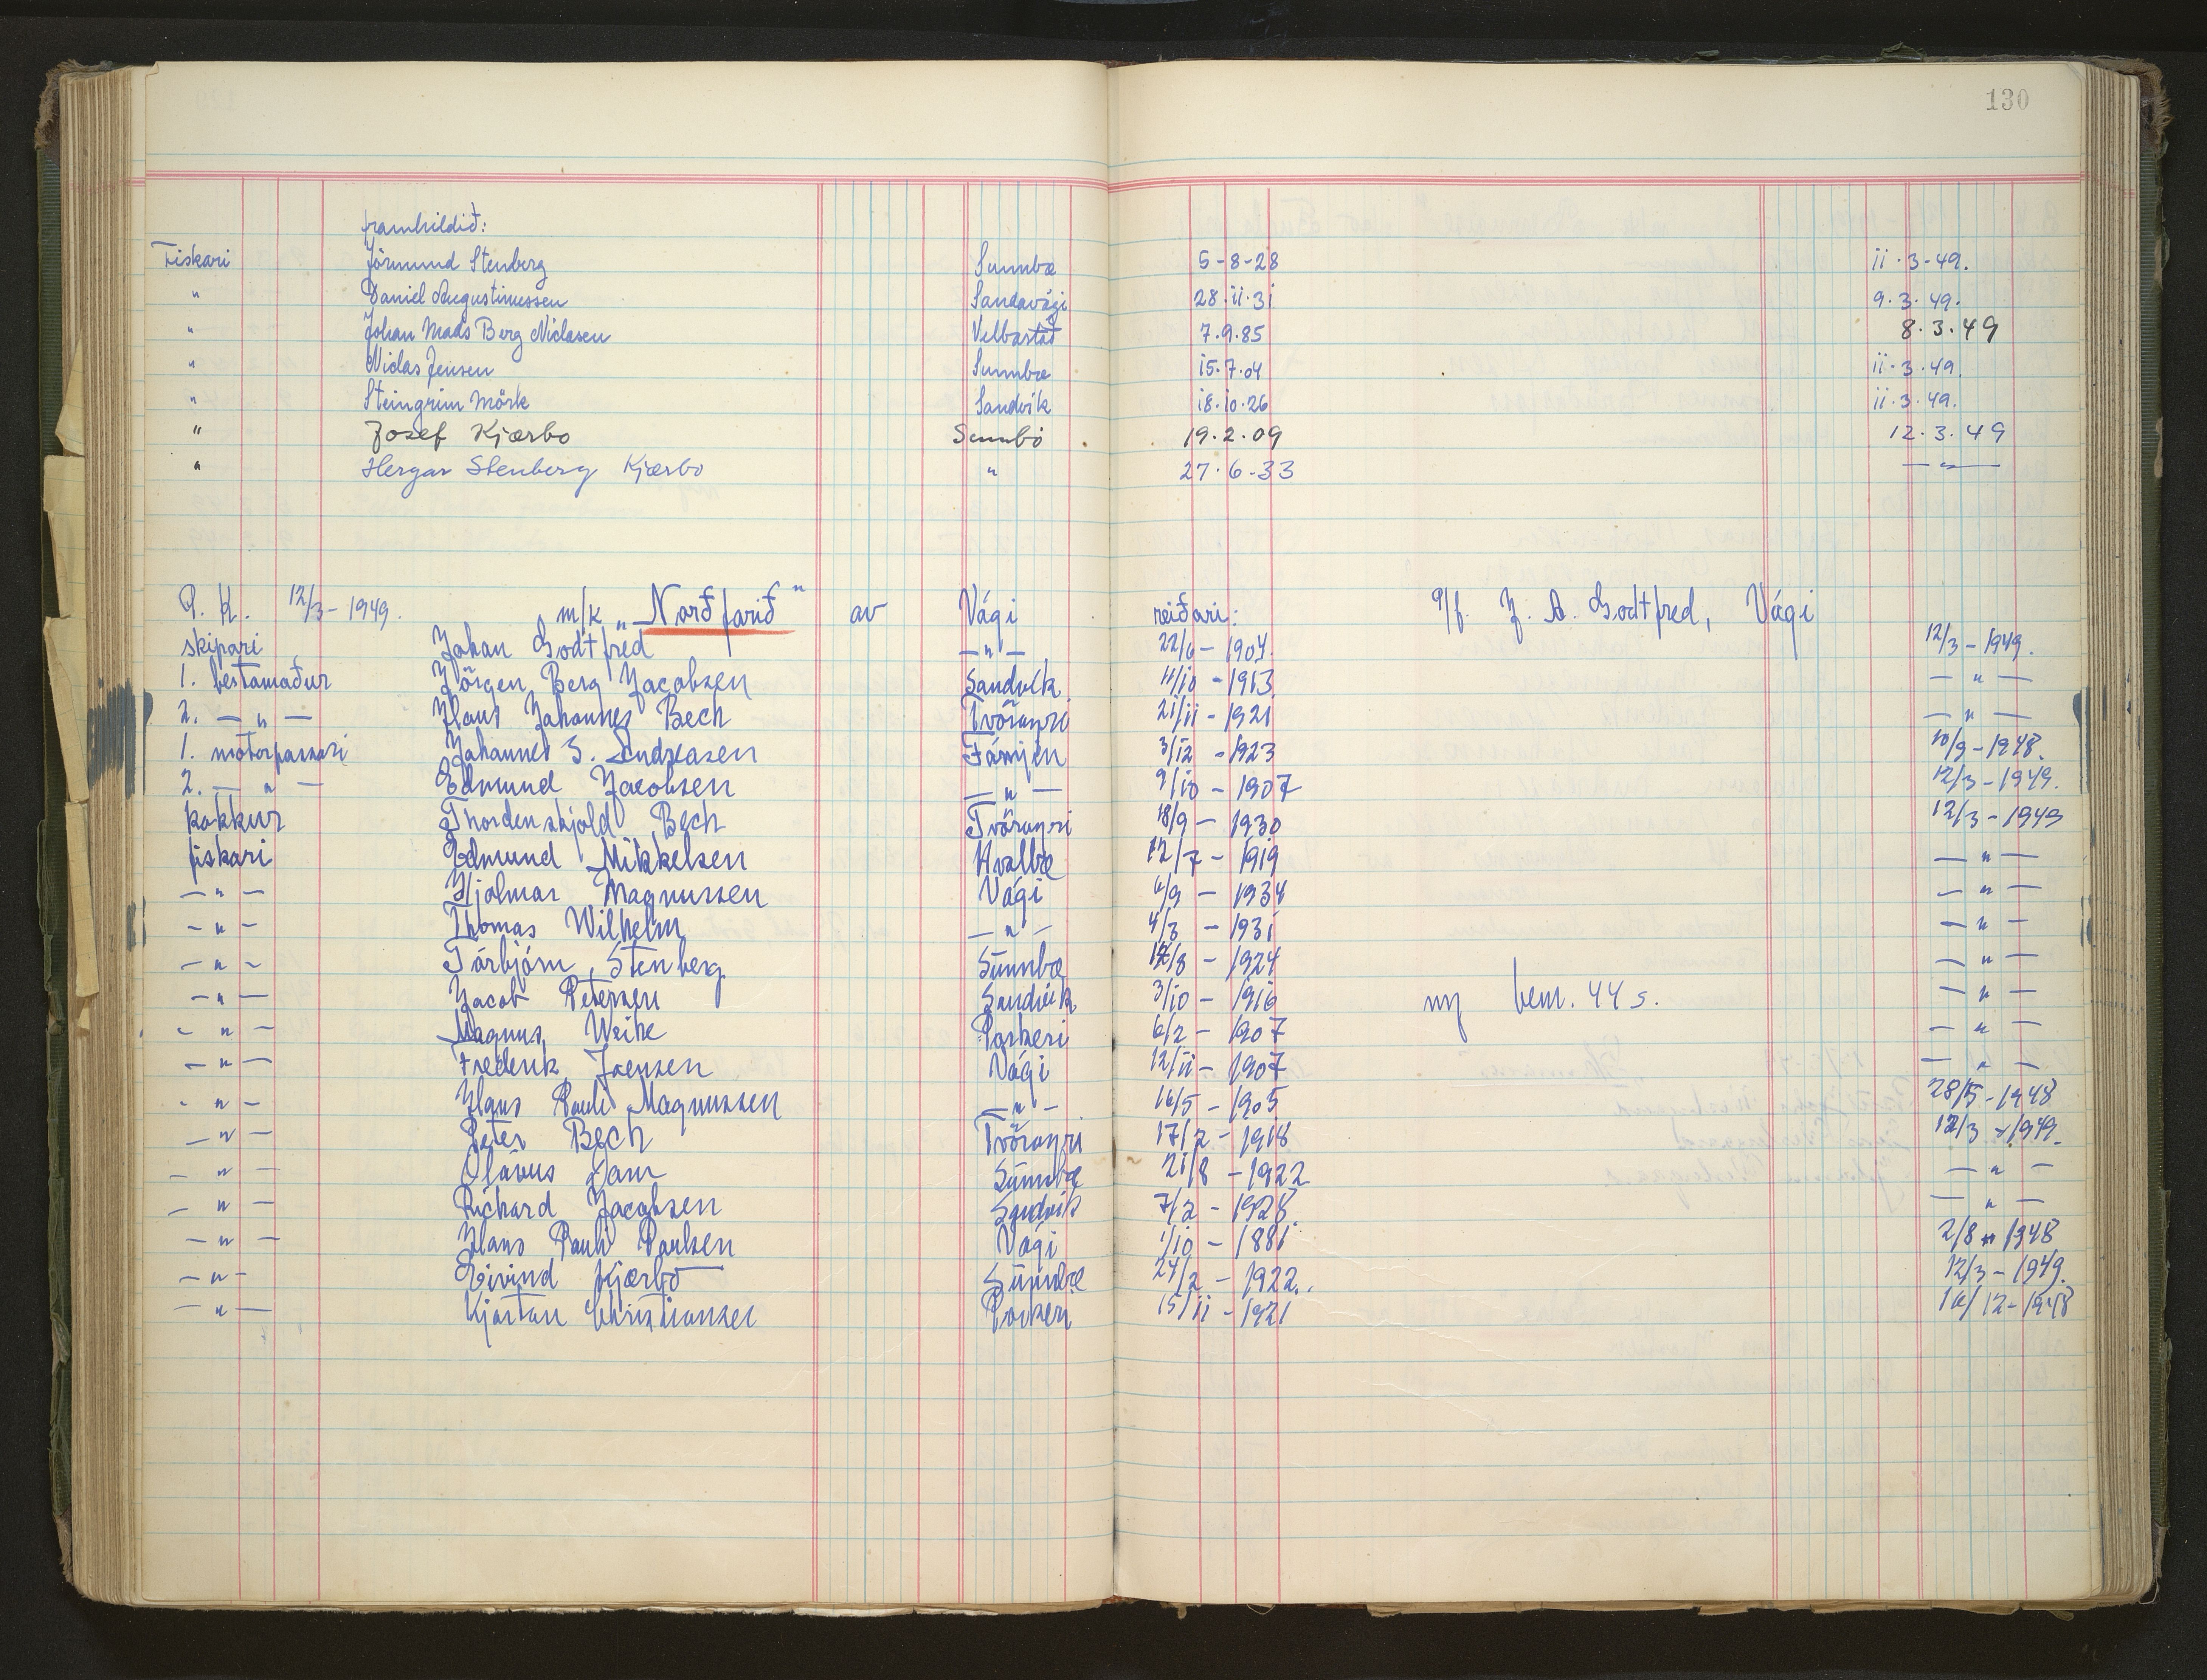 130
framhildið:
Fiskari Jörmund Stenberg Sunnbæ 5-8-28 ii.3-49.
" Daniel Augustinussen Sandavági 28.ii.3i 9.3.49.
" Johan Mads Berg Niclasen Velbastað 7.9.85 8.3.49
" Niclas Jensen Sunnbæ i5.7.04 ii.3.49.
" Steingrim Mörk Sandvík i8.i0.26 ii.3.49.
" Josef Kjærbo Sunnbö 19.2.09 12.3.49
" Hergar Stenberg Kjærbo " 27.6.33 — " —
P. K. 12/3-1949. m/k „Norðfarið" av Vági reiðari: P/f. J. A. Godtfred, Vági
skipari Johan Godtfred — " — 22/6 - 1904. 12/3 - 1949.
1. bestamaður Jörgen Berg Jacobsen Sandvík 11/10 - 1913 — " —
2. — " — Hans Johannes Bech Tvöroyri 21/11 - 1921 — " —
1. motorpassari Johannes S. Andreasen Fámjen 3/12 - 1923 10/9 - 1948.
2. — " — Edmund Jacobsen — " — 9/10 - 1907 12/3 - 1949.
kokkur Thordenskjold Bech Tvöroyri 18/9 - 1930 12/3 - 1949
fiskari Edmund Mikkelsen Hvalbæ 12/7 - 1919 — " —
— " — Hjalmar Magnussen Vági 6/9 - 1934 — " —
— " — Thomas Wilhelm — " — 4/3 - 1931 — " —
— " — Tórbjörn Stenberg Sunnbæ 12/8 - 1924 — " —
— " — Jacob Petersen Sandvík 3/10 - 1916 ny bem. 44 s. — " —
— " — Magnus Weihe Porkeri 6/2 - 1907 — " —
— " — Frederik Joensen Vági 12/11 - 1907 — " —
— " — Hans Pauli Magnussen — " — 16/5 - 1905 28/5 - 1948
— " — Peter Bech Tvöroyri 17/2 - 1918 12/3 - 1949.
— " — Olávus Dam Sunnbæ 21/8 - 1922 — " —
— " — Richard Jacobsen Sandvík 7/2 - 1928 — " —
— " — Hans Pauli Poulsen Vági 1/10 - 1881 2/8 - 1948
— " — Eivind Kjærbo Sunnbæ 24/2 - 1922. 12/3 - 1949.
— " — Kjartan Christiansen Porkeri 15/11 - 1921 16/12 - 1948